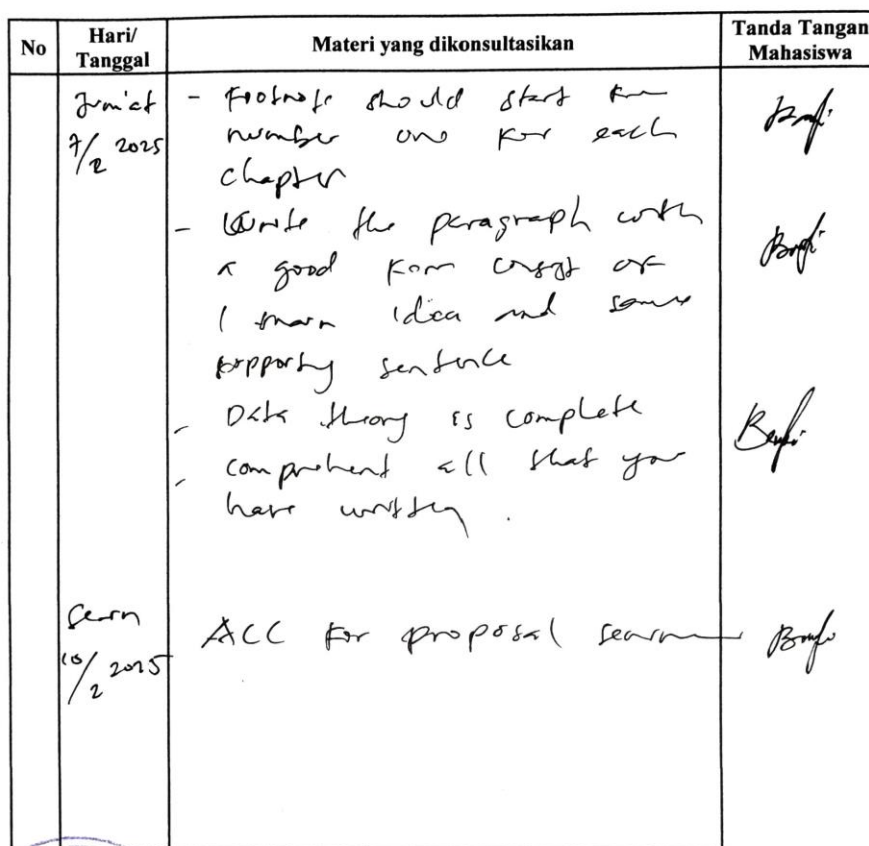 No
Hari/
Tanggal
Materi yang dikonsultasikan
Tanda Tangan
Mahasiswa
Jum'at
7/2 2025
- Footnote should start from
number one for each
chapter
- Write the paragraph with
a good form consist of
1 main idea and some
supporting sentence
- Data theory is complete
- comprehend all that you
have written.
Senin
10/2 2025
ACC for proposal seminar